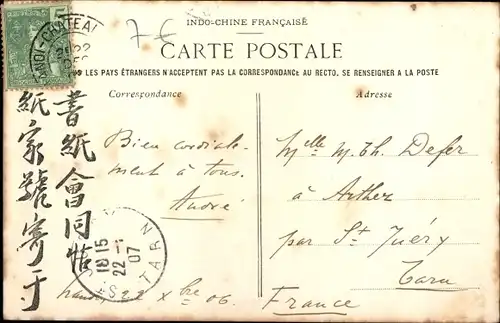 7€
INDO-CHINE FRANÇAISE
CARTE POSTALE
LES PAYS ÉTRANGERS N'ACCEPTENT PAS LA CORRESPONDANCE AU RECTO. SE RENSEIGNER A LA POSTE
Correspondance
Bien cordiale-
ment à tous.
André
22 Xbre 06.
Adresse
Melle M. Th. Defer
à Arthez
par St Juéry
Tarn
France
書紙會同
紙家號寄于
5
22
18 15
22 -1
07
TARN